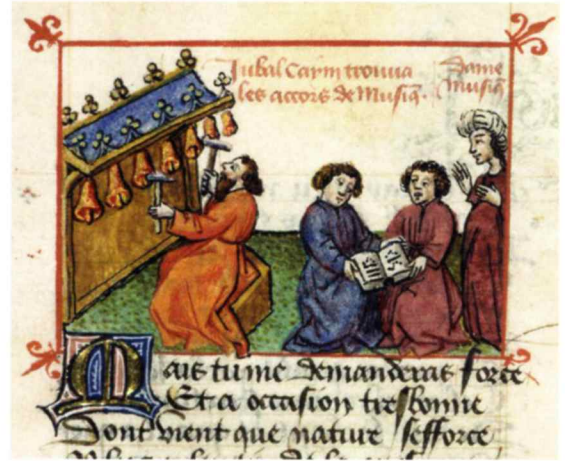 Jubal Caym trouva
les accors de Musiq̃.
Dame
Musiq̃
Mais tu me demanderas force
Et a occasion tresbonne
Dont vient que nature sefforce